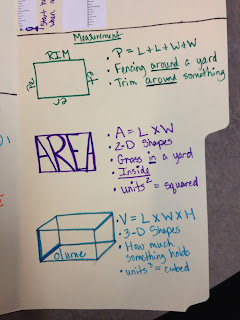 Measurement
PE RIM ET ER
• P = L+L+W+W
• Fencing around a yard
• Trim around something
AREA
• A = L X W
• 2-D Shapes
• Grass in a yard
• Inside
• units² = squared
Volume
• V = L X W X H
• 3-D Shapes
• How much
something holds
• units³ = cubed